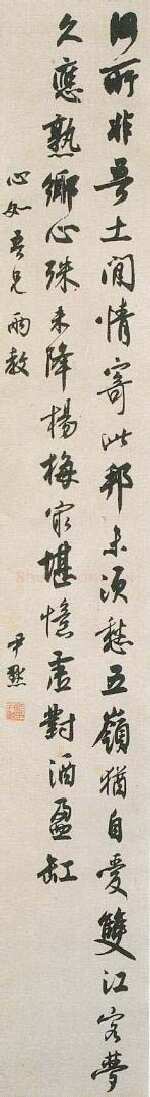 何所非吾土閒情寄此邦未須愁五嶺猶自愛雙江客夢
久應熟鄉心殊未降楊梅最堪憶虛對酒盈缸
心如吾兄雨教
尹默